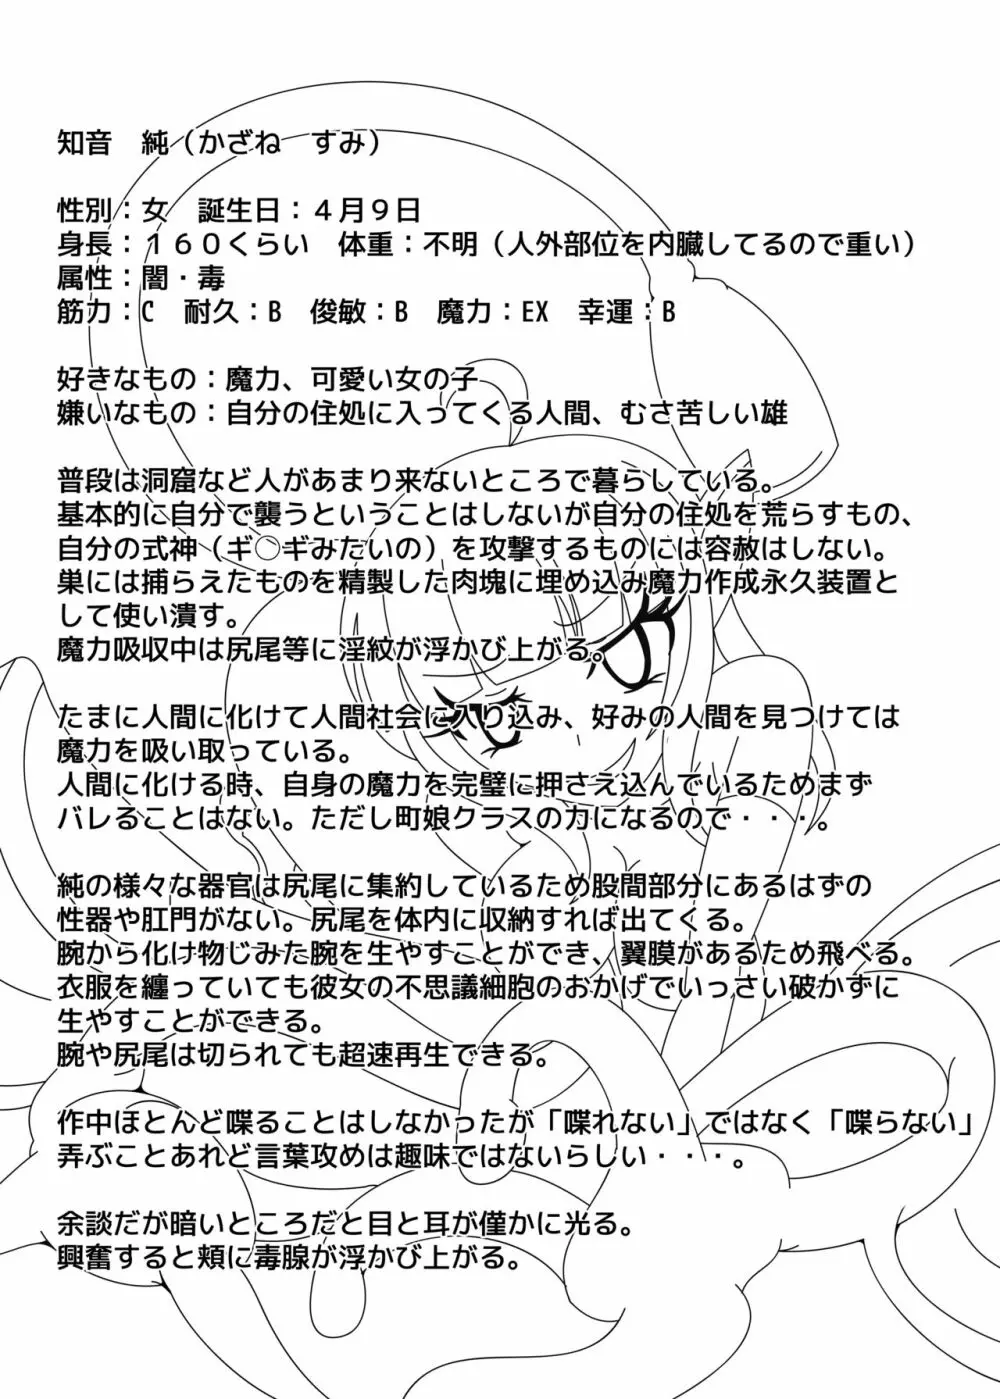 知音　純（かざね　すみ）
性別：女　誕生日：４月９日
身長：１６０くらい　体重：不明（人外部位を内臓してるので重い）
属性：闇・毒
筋力：C　耐久：B　俊敏：B　魔力：EX　幸運：B
好きなもの：魔力、可愛い女の子
嫌いなもの：自分の住処に入ってくる人間、むさ苦しい雄
普段は洞窟など人があまり来ないところで暮らしている。
基本的に自分で襲うということはしないが自分の住処を荒らすもの、
自分の式神（ギ〇ギみたいの）を攻撃するものには容赦はしない。
巣には捕らえたものを精製した肉塊に埋め込み魔力作成永久装置と
して使い潰す。
魔力吸収中は尻尾等に淫紋が浮かび上がる。
たまに人間に化けて人間社会に入り込み、好みの人間を見つけては
魔力を吸い取っている。
人間に化ける時、自身の魔力を完璧に押さえ込んでいるためまず
バレることはない。ただし町娘クラスの力になるので・・・。
純の様々な器官は尻尾に集約しているため股間部分にあるはずの
性器や肛門がない。尻尾を体内に収納すれば出てくる。
腕から化け物じみた腕を生やすことができ、翼膜があるため飛べる。
衣服を纏っていても彼女の不思議細胞のおかげでいっさい破かずに
生やすことができる。
腕や尻尾は切られても超速再生できる。
作中ほとんど喋ることはしなかったが「喋れない」ではなく「喋らない」
弄ぶことあれど言葉攻めは趣味ではないらしい・・・。
余談だが暗いところだと目と耳が僅かに光る。
興奮すると頬に毒腺が浮かび上がる。